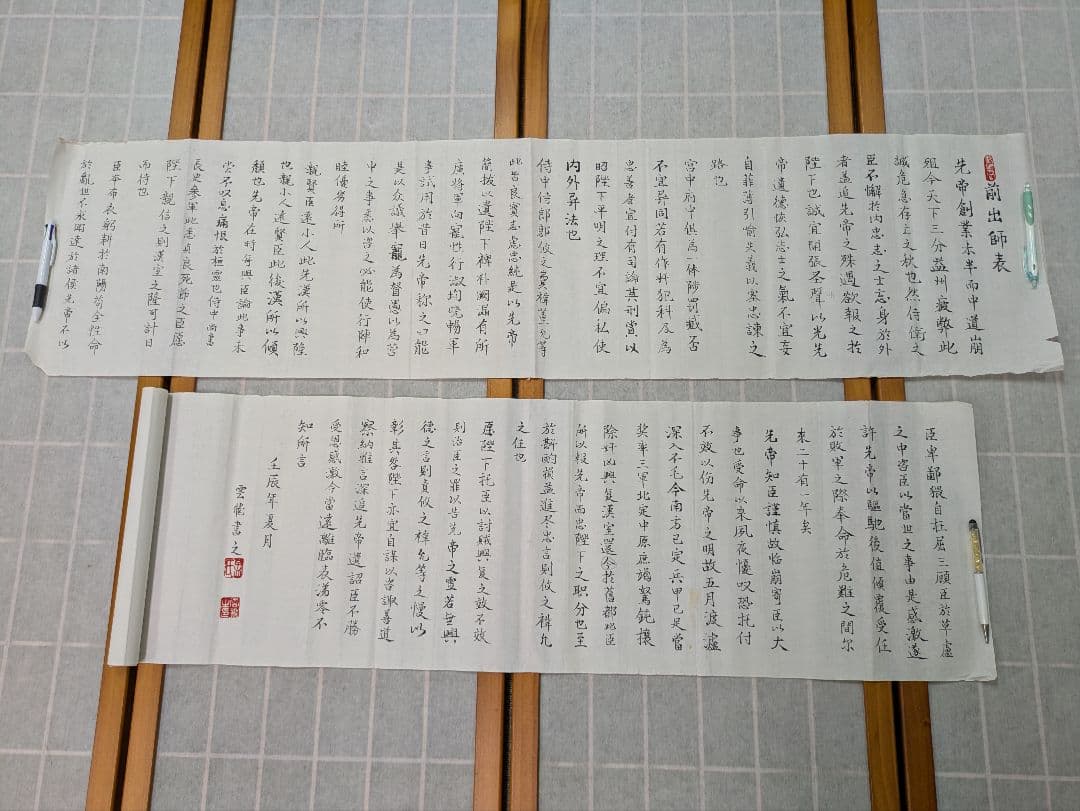 前出師表
先帝創業未半而中道崩
殂今天下三分益州疲弊此
誠危急存亡之秋也然侍衛之
臣不懈於內忠志之士忘身於外
者蓋追先帝之殊遇欲報之於
陛下也誠宜開張圣聽以光先
帝遺德恢弘志士之氣不宜妄
自菲薄引喻失義以塞忠諫之
路也
宮中府中俱為一体陟罰臧否
不宜异同若有作奸犯科及為
忠善者宜付有司論其刑賞以
昭陛下平明之理不宜偏私使
內外异法也
侍中侍郎郭攸之費褘董允等
此皆良實志慮忠純是以先帝
簡拔以遺陛下裨补闕漏有所
廣將軍向寵性行淑均曉暢軍
事試用於昔日先帝称之曰能
是以众議舉寵為督愚以為營
中之事悉以咨之必能使行陣和
睦優劣得所
親賢臣遠小人此先漢所以興隆
也親小人遠賢臣此後漢所以傾
頹也先帝在時每與臣論此事未
尝不叹息痛恨於桓靈也侍中尚書
長史參軍此悉貞良死節之臣愿
陛下親信之則漢室之隆可計日
而待也
臣本布衣躬耕於南陽苟全性命
於亂世不求聞達於諸侯先帝不以
臣卑鄙猥自枉屈三顧臣於草廬
之中咨臣以當世之事由是感激遂
許先帝以驅馳後值傾覆受任
於敗軍之際奉命於危難之間尔
來二十有一年矣
先帝知臣謹慎故临崩寄臣以大
事也受命以來夙夜憂叹恐托付
不效以伤先帝之明故五月渡瀘
深入不毛今南方已定兵甲已足當
奖率三軍北定中原庶竭駑鈍攘
除奸凶興复漢室還今於舊都此臣
所以报先帝而忠陛下之职分也至
於斟酌損益進尽忠言則攸之褘允
之任也
愿陛下托臣以討賊興复之效不效
則治臣之罪以告先帝之靈若無興
德之言則責攸之褘允等之慢以
彰其咎陛下亦宜自謀以咨諏善道
察納雅言深追先帝遺詔臣不勝
受恩感激今當遠離臨表涕零不
知所言
壬辰年夏月
雲龍書之